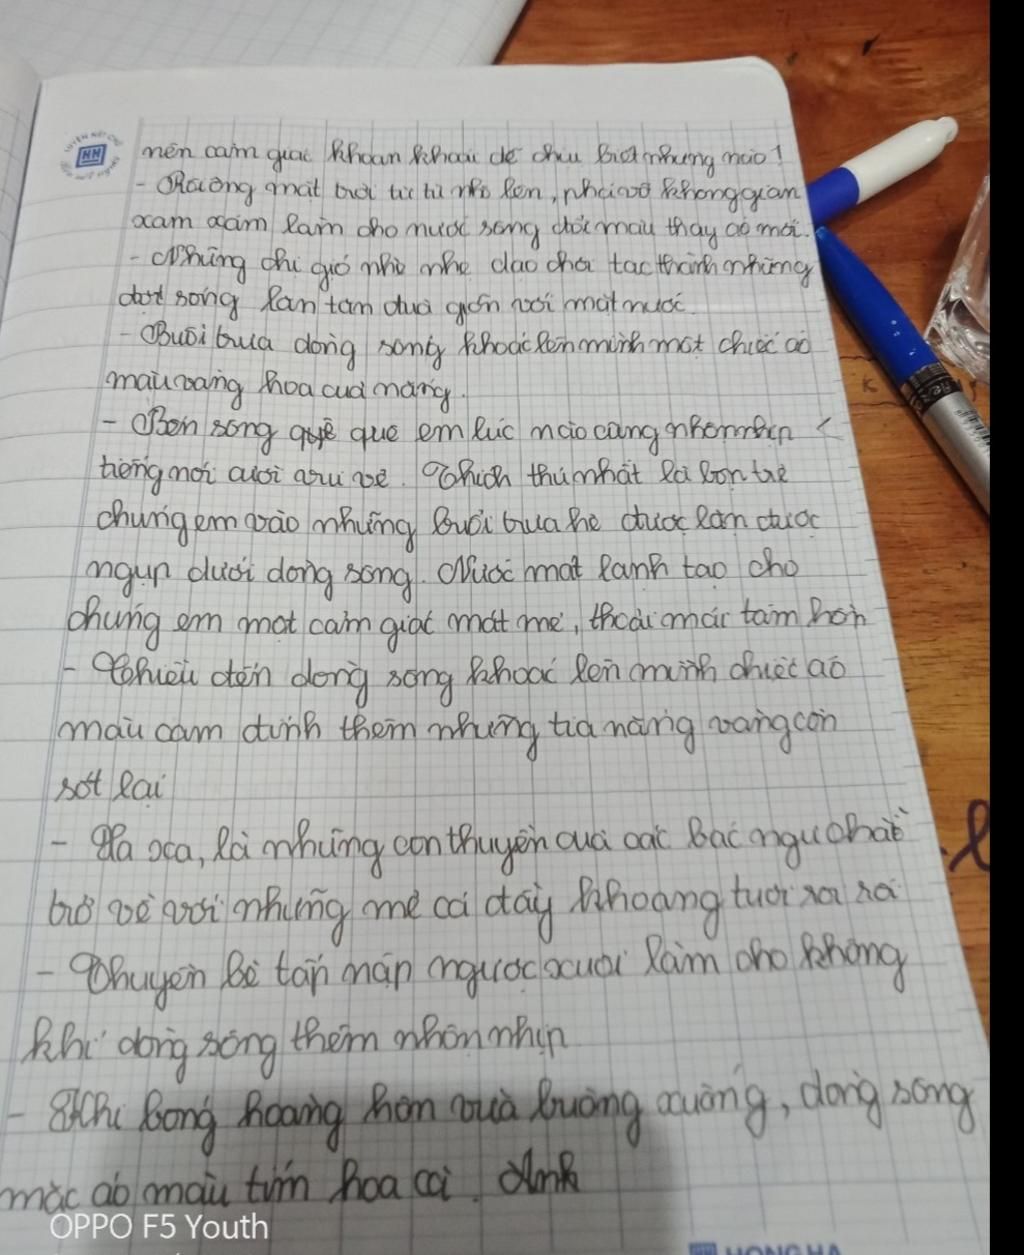 nên cảm giác khoan khoái dễ chịu biết nhường nào!
- Rạng mặt trời từ từ nhô lên, phá vỡ không gian
xam xám làm cho nước sông đổi màu thay áo mới.
- Những chị gió nhè nhẹ dạo chơi tạc thành những
đợt sóng lăn tăn đùa giỡn với mặt nước.
- Buổi trưa dòng sông khoác lên mình một chiếc áo
màu vàng hoa của nắng.
- Bến sông quê em lúc nào cũng nhộn nhịp
tiếng nói cười vui vẻ. Thích thú nhất là bọn trẻ
chúng em vào những buổi trưa hè được lặn được
ngụp dưới dòng sông. Nước mát lạnh tạo cho
chúng em một cảm giác mát mẻ, thoải mái tâm hồn
- Chiều đến dòng sông khoác lên mình chiếc áo
màu cam đính thêm những tia nắng vàng còn
sót lại
- Xa xa, là những con thuyền của các bác ngư chài
trở về với những mẻ cá đầy khoang tươi roi rói
- Thuyền bè tấp nập ngược xuôi làm cho không
khí dòng sông thêm nhộn nhịp
- Khi bóng hoàng hôn vừa buông xuống, dòng sông
mặc áo màu tím hoa cà. Ánh
OPPO F5 Youth
HONG HA